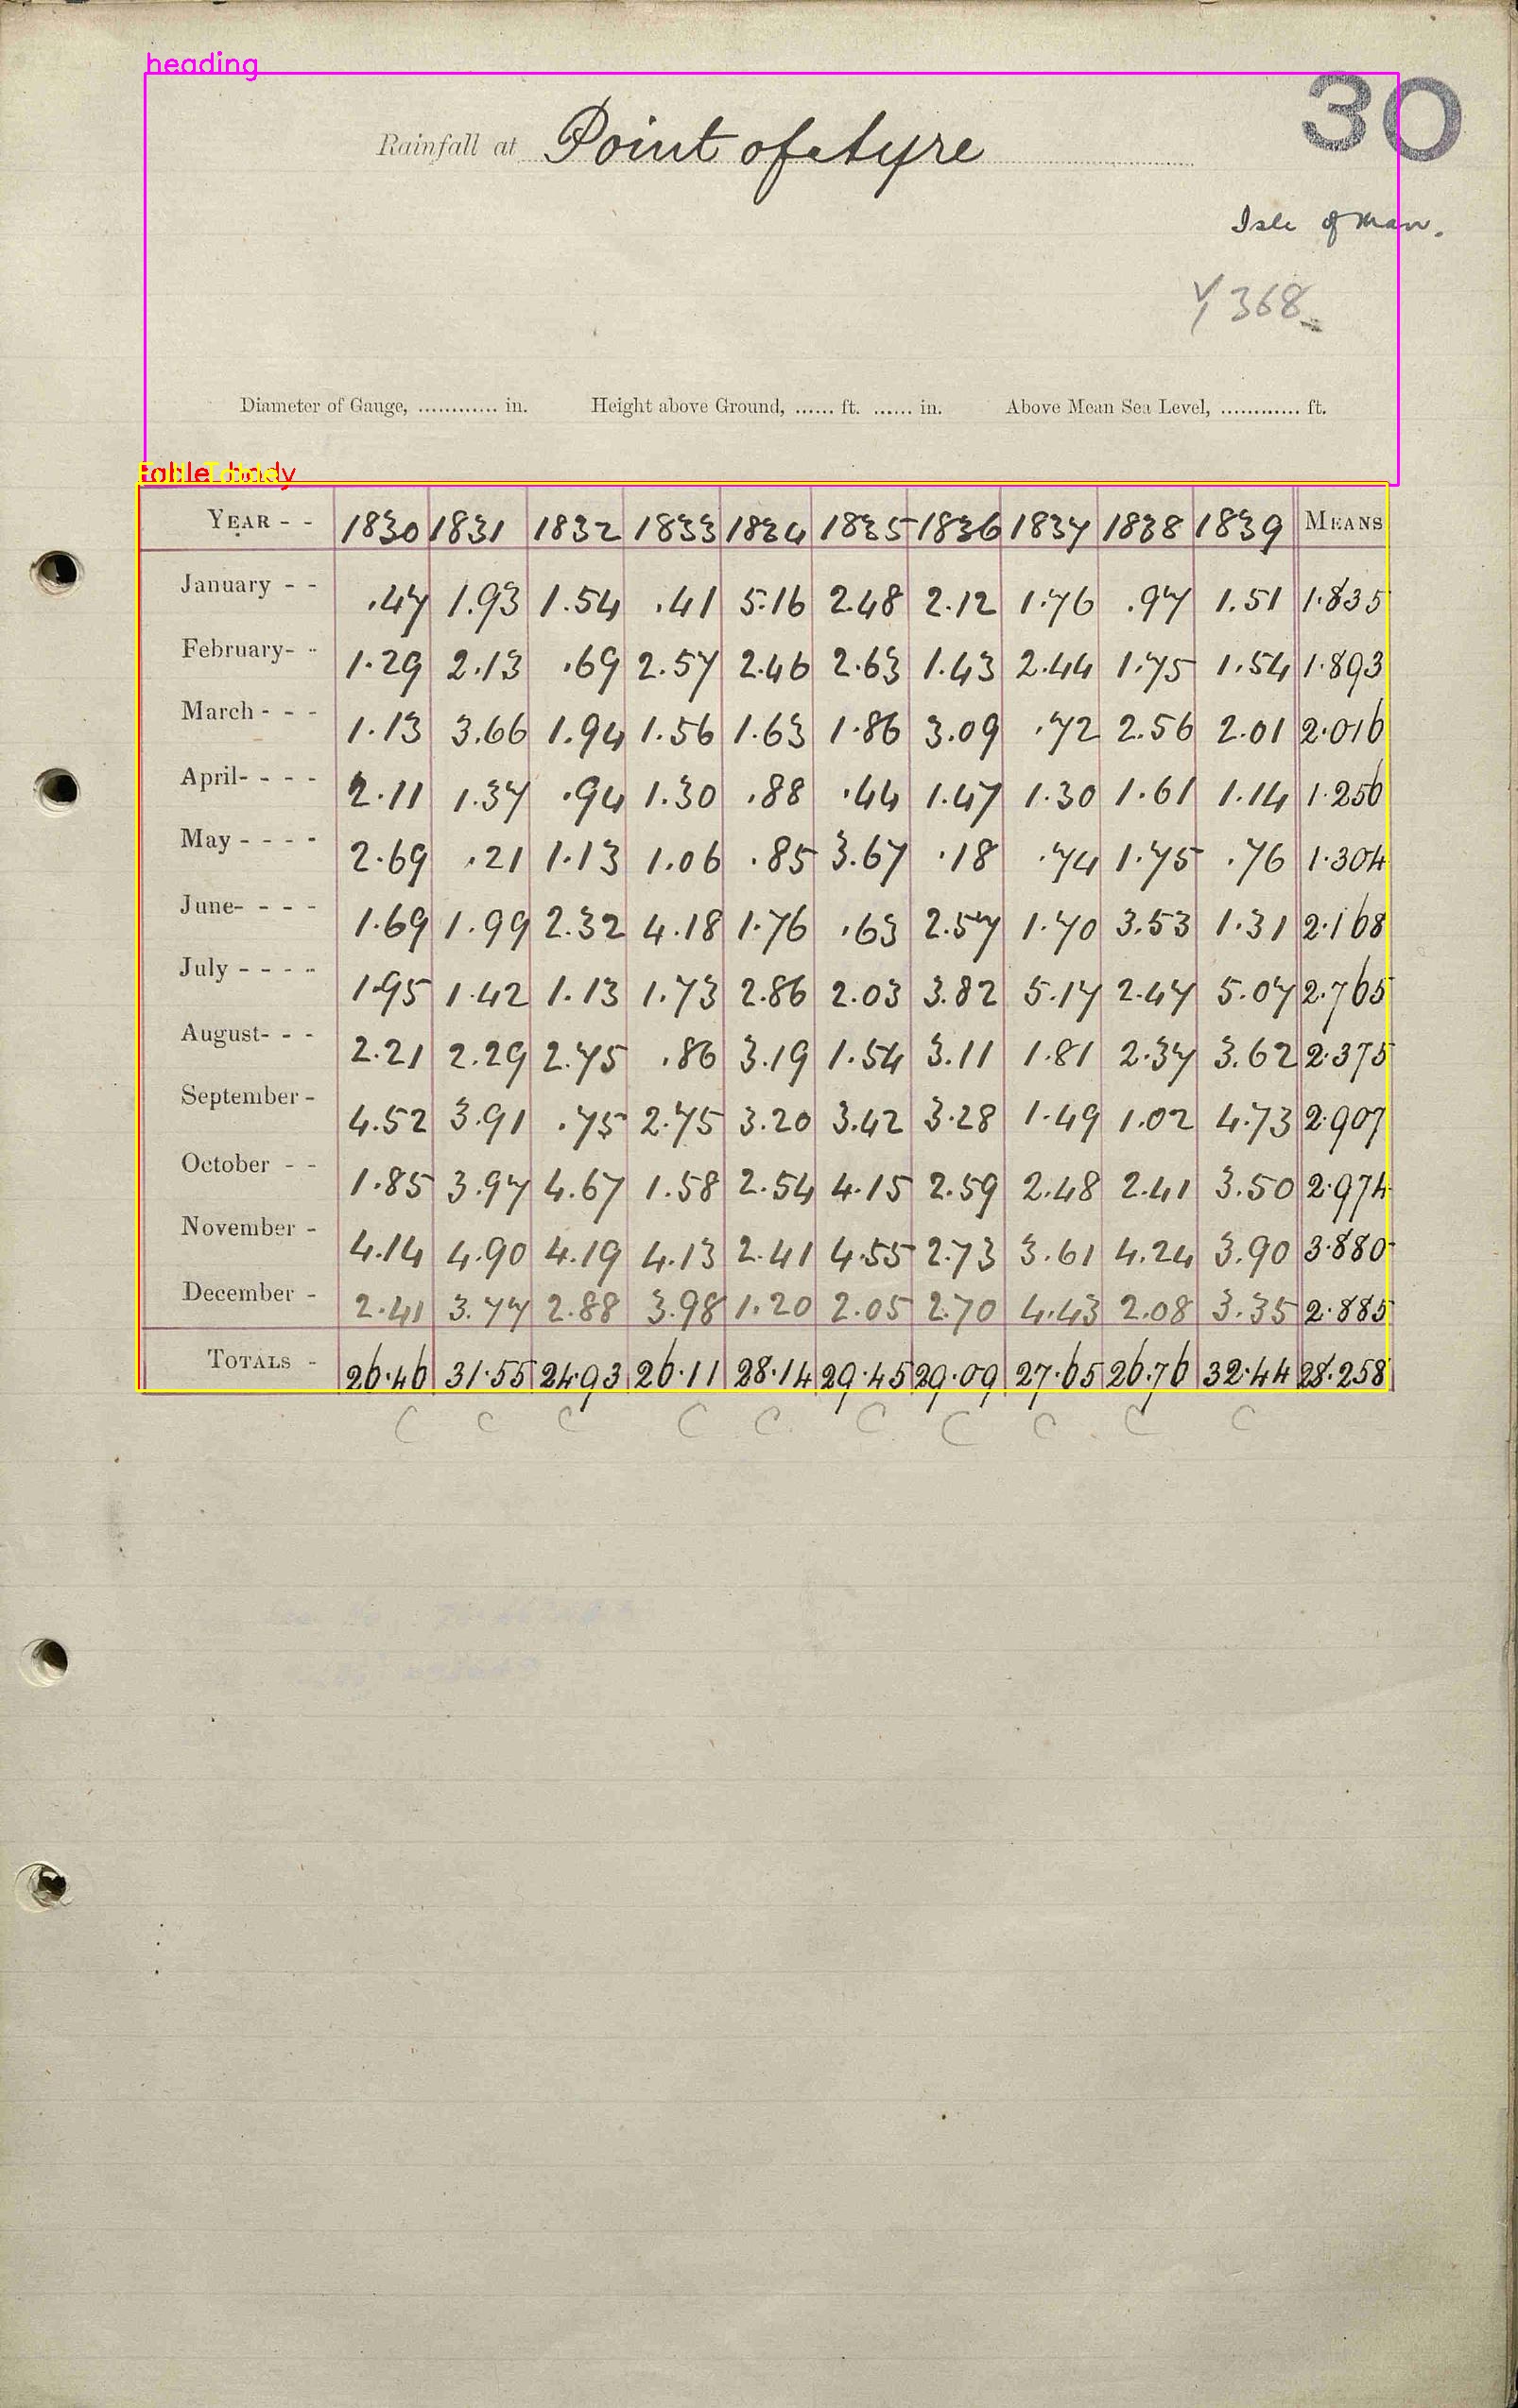 heading
30
Rainfall at Point of Ayre
Isle of Man.
368
Diameter of Gauge, ............ in. Height above Ground, ...... ft. ...... in. Above Mean Sea Level, ............ ft.
YEAR - - 1830 1831 1832 1833 1834 1835 1836 1837 1838 1839 MEANS
January - - .47 1.93 1.54 .41 5.16 2.48 2.12 1.76 .97 1.51 1.835
February- - 1.29 2.13 .69 2.57 2.46 2.63 1.43 2.44 1.75 1.54 1.893
March - - - 1.13 3.66 1.94 1.56 1.63 1.86 3.09 .72 2.56 2.01 2.016
April- - - - 2.11 1.37 .94 1.30 .88 .44 1.47 1.30 1.61 1.14 1.256
May - - - - 2.69 .21 1.13 1.06 .85 3.67 .18 .74 1.75 .76 1.304
June- - - - 1.69 1.99 2.32 4.18 1.76 .63 2.57 1.70 3.53 1.31 2.168
July - - - - 1.95 1.42 1.13 1.73 2.86 2.03 3.82 5.17 2.47 5.07 2.765
August- - - 2.21 2.29 2.75 .86 3.19 1.54 3.11 1.81 2.37 3.62 2.375
September - 4.52 3.91 .75 2.75 3.20 3.42 3.28 1.49 1.02 4.73 2.907
October - - 1.85 3.97 4.67 1.58 2.54 4.15 2.59 2.48 2.41 3.50 2.974
November - 4.14 4.90 4.19 4.13 2.41 4.55 2.73 3.61 4.24 3.90 3.880
December - 2.41 3.77 2.88 3.98 1.20 2.05 2.70 4.43 2.08 3.35 2.885
TOTALS - 26.46 31.55 24.93 26.11 28.14 29.45 29.09 27.65 26.76 32.44 28.258
C C C C C C C C C C